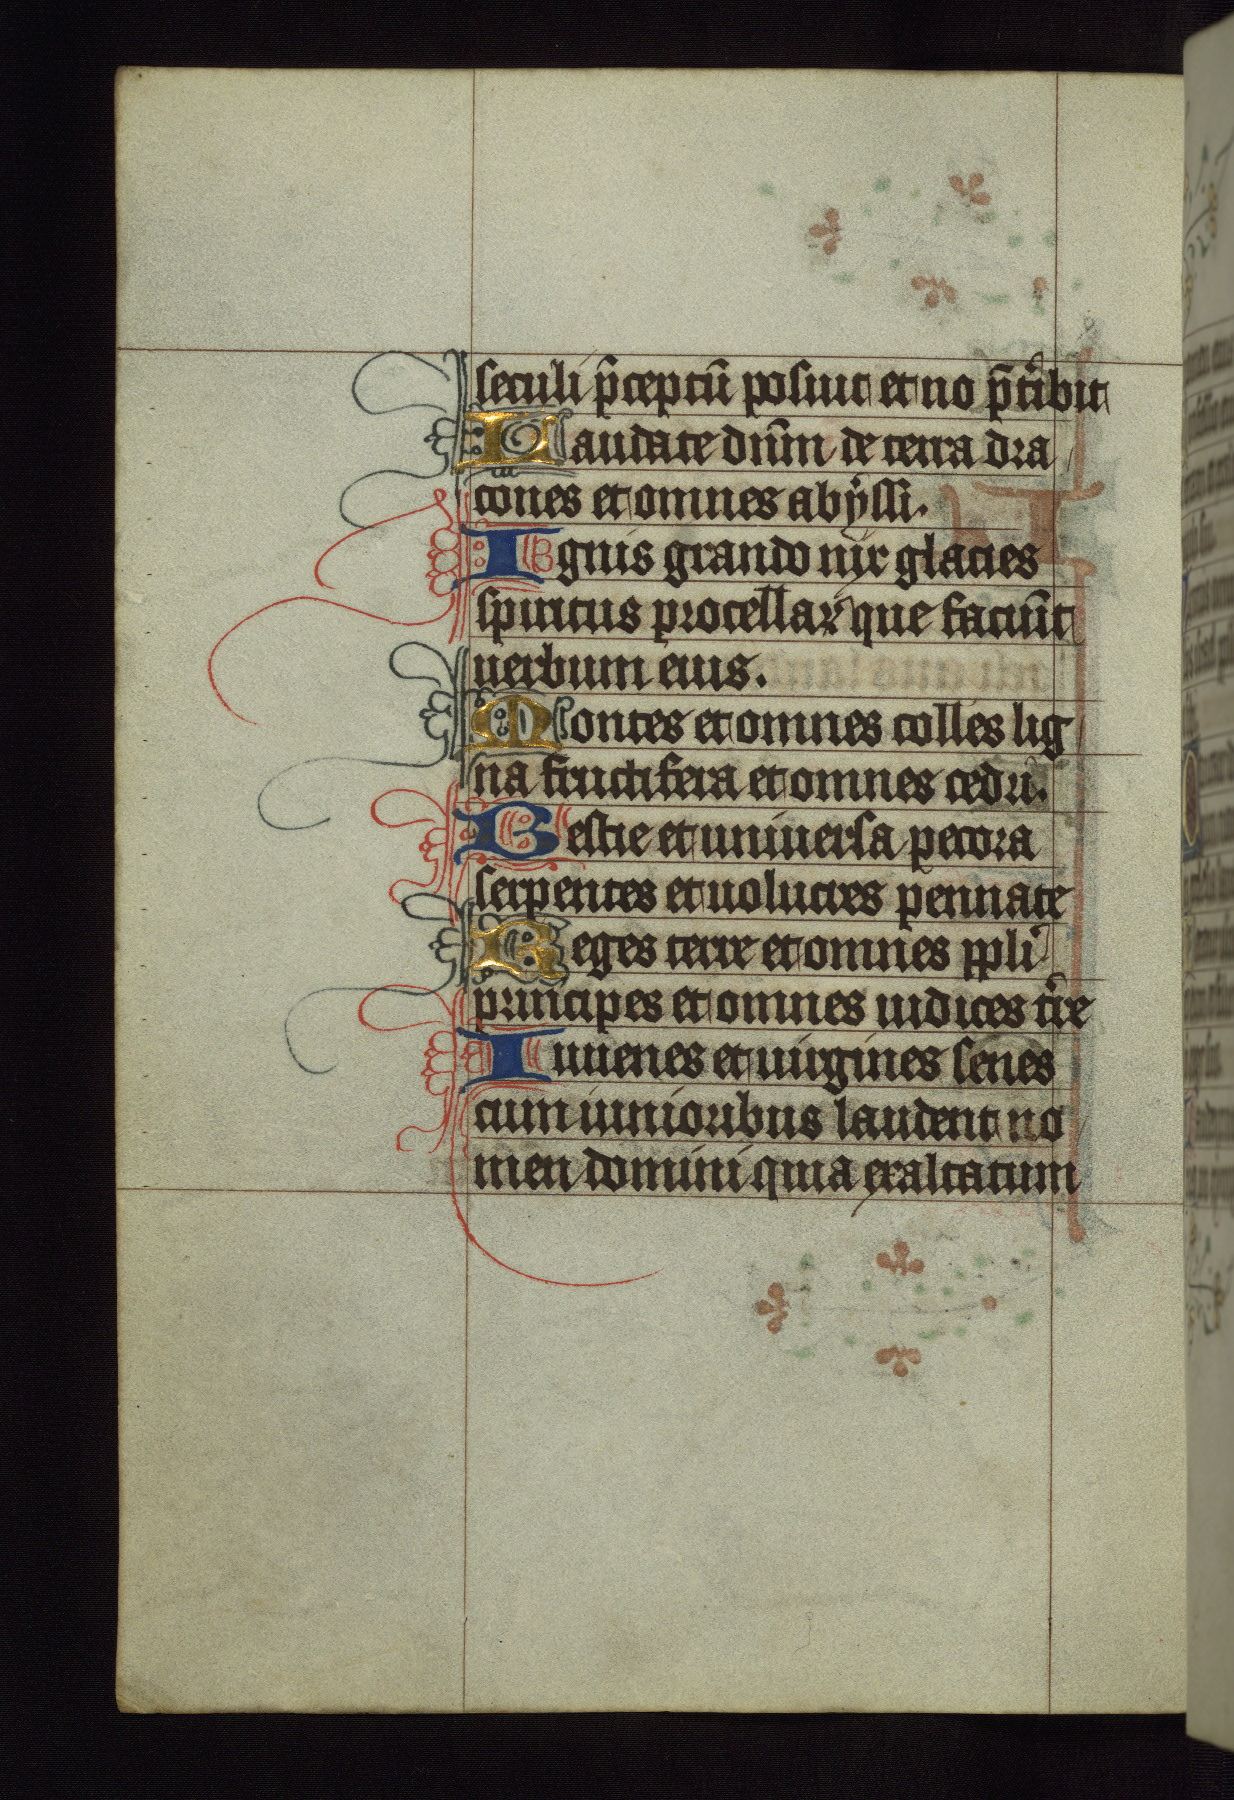 seculi p̄ceptū posuit et no p̄t̾ibit
Laudate dn̄m de terra dra
cones et omnes abẏssi.
Ignis grando nix glacies
spiritus procellaꝝ que faciūt
uerbum eius.
Montes et omnes colles lig
na fructifera et omnes cedri.
Bestie et uniuersa pecora
serpentes et uolucres pennate
Reges terre et omnes ppl̄i
principes et omnes iudices t̾re
Iuuenes et uirgines senes
cum iunioribus laudent no
men domini quia exaltatum